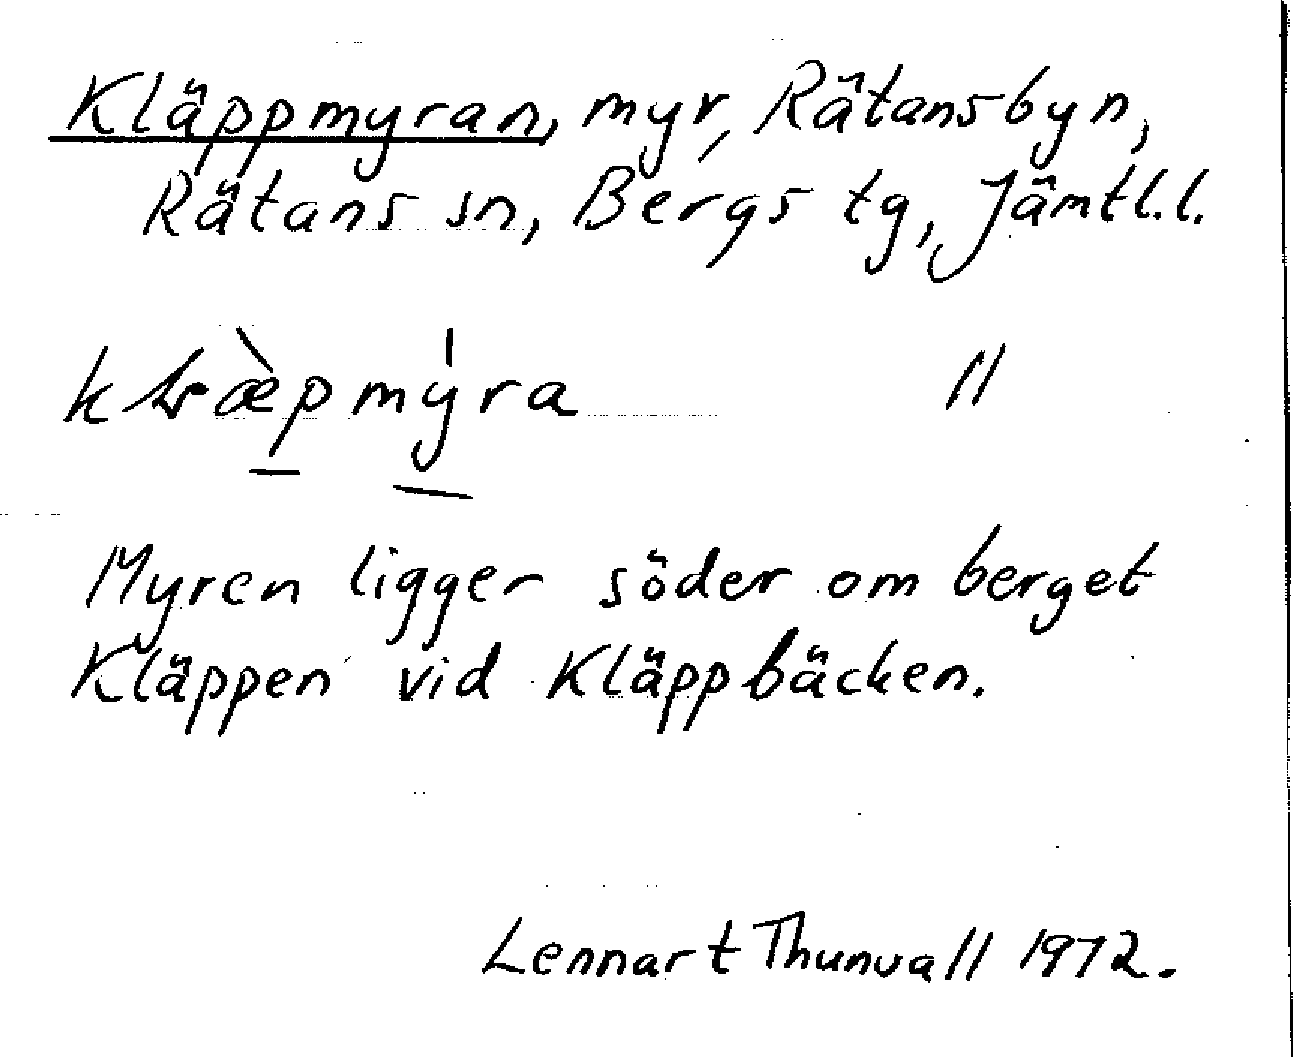 Kläppmyran, myr, Rätansbyn,
Rätans sn, Bergs tg, Jämtl.l.
"
Myren ligger söder om berget
Kläppen vid Kläppbäcken.
Lennart Thunvall 1972.